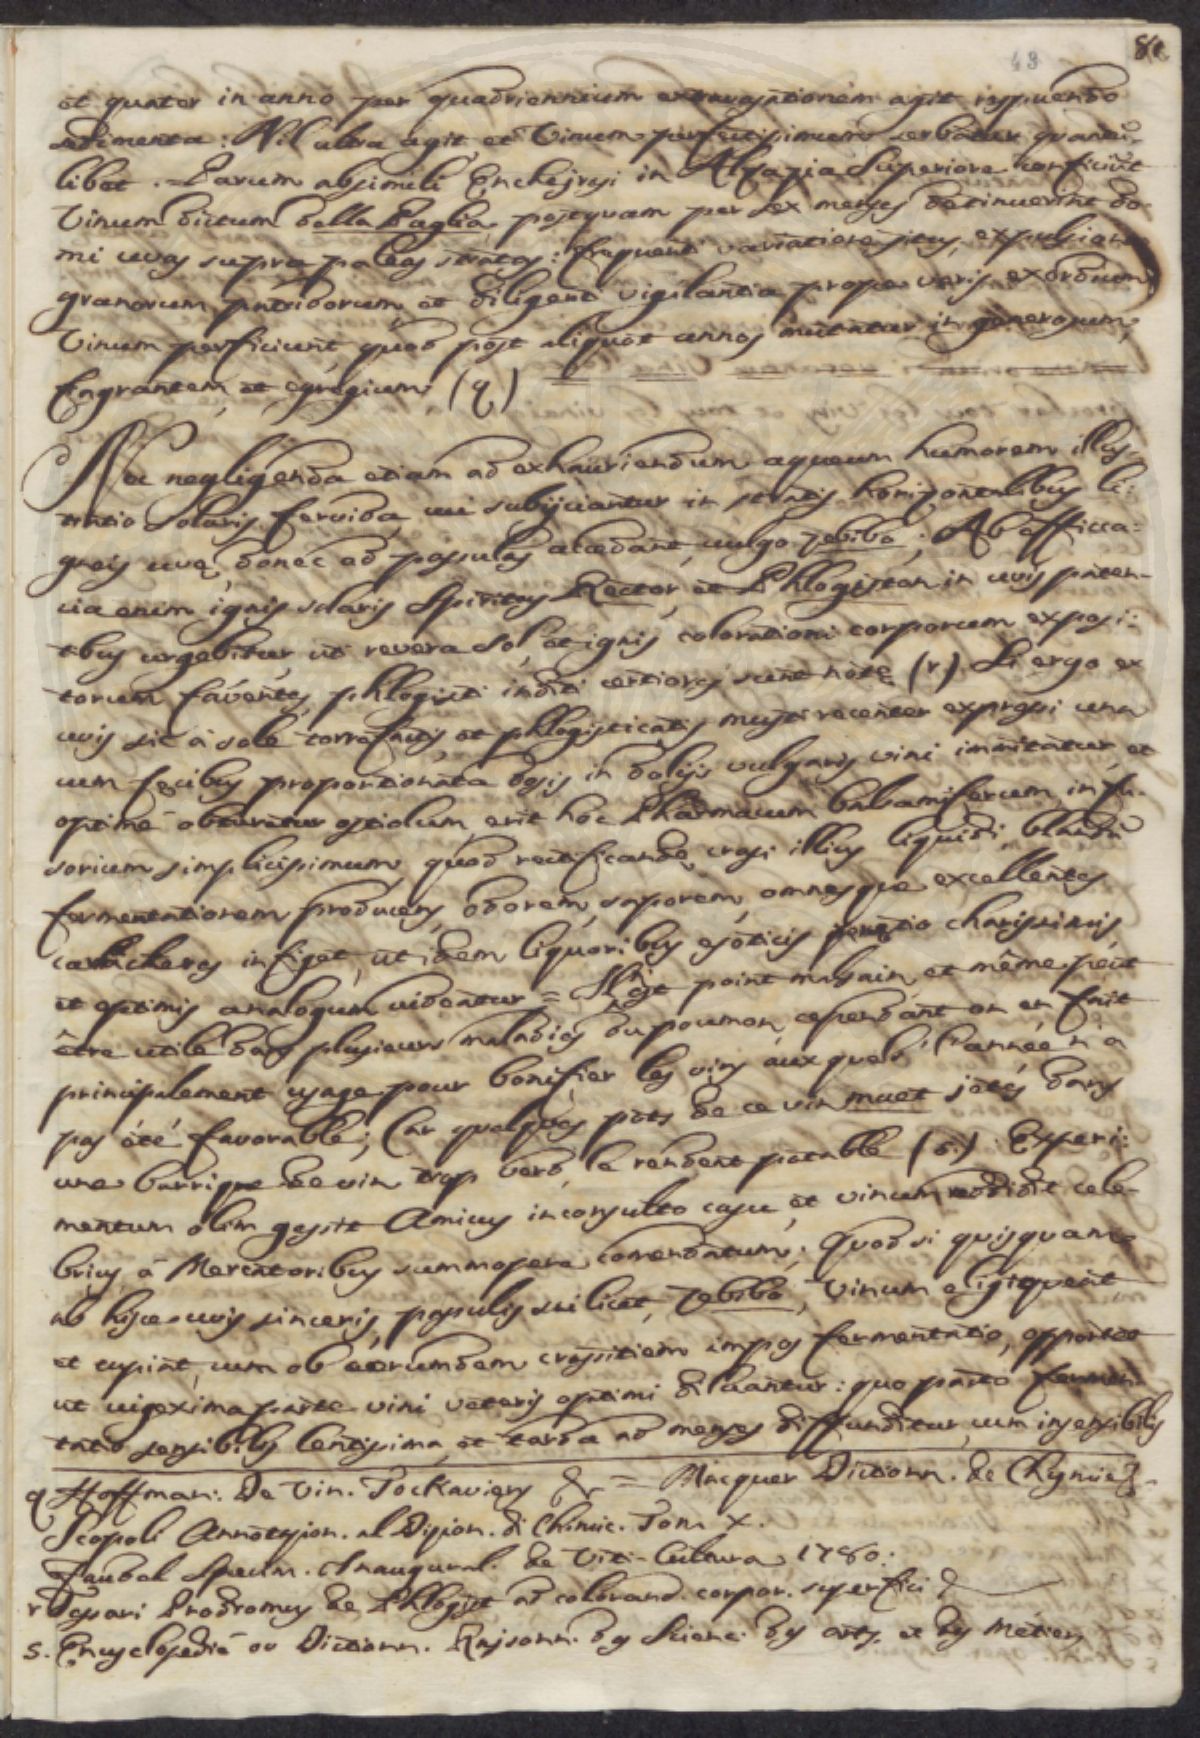 48 81
et quater in anno per quadriennium extravasationem agit respuendo
sedimenta: Nil ultra agit, et Vinum perfectissimum servatur quanti-
libet. = Parum absimili Encheiresi in Alsazia Superiore conficiunt
Vinum dictum della Paglia, postquam per sex menses detinuerint do-
mi uvas supra paleas stratas: frequenti variatione situs, expulsione
granorum putridorum, et diligenti vigilantia prope veris exordium
Vinum perficiunt, quod post aliquot annos mutatur in generosum,
fragrantem, et egregium (q)
Nec negligenda etiam ad exhauriendum aqueum humorem illus-
tratio solaris fervida, cui subijciantur in stratis horizontalibus li-
gneis uvę, donec ad passulas accedant, vulgo zebibo; Ab efficca-
cia enim ignis solaris Spiritus Rector, et Phlogiston in uvis paten-
tibus urgebitur, uti revera sol, et ignis colorationi corporum exposi-
torum faventes, phlogisti inditi certiores sunt notę (r). Si ergo ex
uvis sic à sole torrefactis, et phlogisticatis musti recenter expressi una
cum fęcibus proportionata dosis in dolijs vulgaris vini immitatur, et
optimè obturatur ostiolum, erit hoc Pharmacum balsamiferum, infu-
sorium simplicissimum, quod rectificandę crasi illius liquidi, blandam
fermentationem producens, odorem, saporem, omnesque excellentes
caracheres infiget, ut idem liquoribus exoticis pretio charissimis,
et optimis analogum videatur = Il n'est point malsain, et même peut
être utile dans plusieurs maladies du poumon, cependant on en fait
principalement usage pour bonifier les vins aux quels l'année n'a
pas été favorable; Car quelques pots de ce vin muet jetés dans
une barrique de vin trop verd, le rendent potable (s.). Experi-
mentum olim gessit Amicus inconsulto casu, et vinum reddidit cele-
brius, à Mercatoribus summopere comendatum; Quod si quisquam
ab hisce uvis sinceris, passulis scilicet, Zebibo, Vinum eligiquent,
et cupiat, cum ob earumdem crassitiem impos fermentatio, opportet
ut vigexima parte vini veteris optimi diluantur: quo pacto fermen-
tatio sensibilis lentissima, et tarda ad menses diffunditur, cum insensibilis
q Hoffman: De Vin. Tockaviens &c = Macquer Dictionn. de Chymie &.
Scopoli Annotazion. al Dizion. di Chimic. Tom. X.
Faubel Specim. Inaugural. de Viti-Cultura 1780:
r Tessari Prodromus de Phlogist. ad colorand. corpor. superfici &
s. Encyclopedie ou Dictionn. Raisonn. des Scienc. des arts, et des Métiers